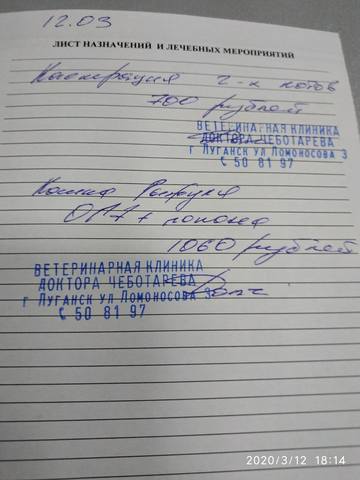 12.03
ЛИСТ НАЗНАЧЕНИЙ И ЛЕЧЕБНЫХ МЕРОПРИЯТИЙ
Кастрация 2-х котов
700 рублей
ВЕТЕРИНАРНАЯ КЛИНИКА
ДОКТОРА ЧЕБОТАРЕВА
г Луганск ул Ломоносова 3
50 81 97
Кошка
ОГЭ + попона
1060 рублей
ВЕТЕРИНАРНАЯ КЛИНИКА
ДОКТОРА ЧЕБОТАРЕВА
г Луганск ул Ломоносова 3
50 81 97
2020/3/12 18:14